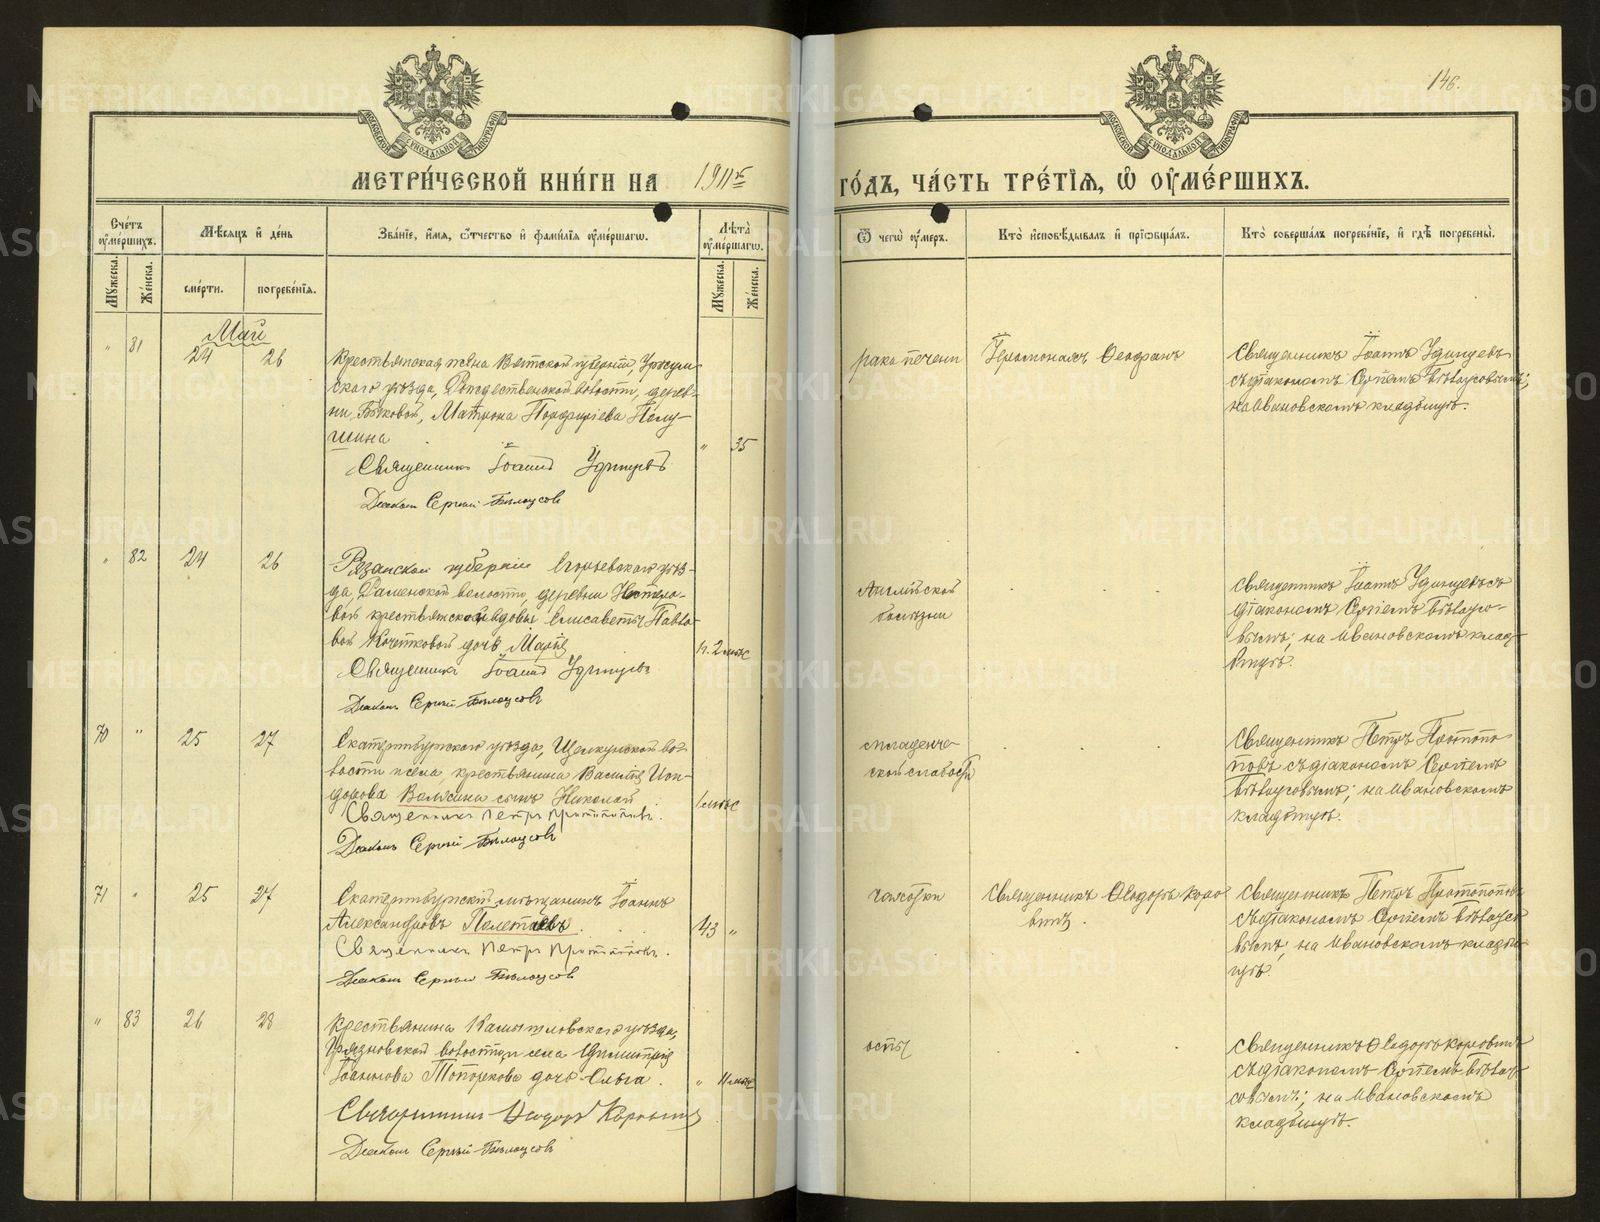 146.
МОСКОВСКОЙ СѴНОДАЛЬНОЙ ТИПОГРАФІИ
МОСКОВСКОЙ СѴНОДАЛЬНОЙ ТИПОГРАФІИ
МЕТРИ́ЧЕСКОЙ КНИ́ГИ НА 1911й ГО́ДЪ, ЧА́СТЬ ТРЕ́ТІѦ, Ѡ҆ ОУ҆МЕ́РШИХЪ.
Сче́тъ оу҆ме́ршихъ.
Мꙋ́жеска. Же́нска.
Мѣ́сѧцъ и҆ де́нь
сме́рти. погребе́нїѧ.
Зва́нїе, и҆́мѧ, ѻ҆́тчество и҆ фами́лїѧ оу҆ме́ршагѡ.
Лѣ́та оу҆ме́ршагѡ.
Мꙋ́жеска. Же́нска.
Ѿ чегѡ̀ оу҆́меръ.
Кто̀ и҆сповѣ́дывалъ и҆ прїѡбща́лъ.
Кто̀ соверша́лъ погребе́нїе, и҆ гдѣ̀ погребены̀.
Май
" 81 24 26
Крестьянская жена Вятской губерніи, Уржум-
скаго уѣзда, Рождественской волости, дерев-
ни Быковой, Матрона Порфиріева Полу-
шина
" 35
Священникъ Іоаннъ Удинцевъ
Діаконъ Сергій Бѣлоусовъ
рака печени
Іеромонахъ Ѳеофанъ
Священникъ Іоаннъ Удинцевъ
съ діакономъ Сергіемъ Бѣлоусовымъ;
на Ивановскомъ кладбищѣ.
" 82 24 26
Рязанской губерніи Егорьевскаго уѣз-
да, Раменской волости, деревни Нестеро-
вой крестьянской вдовы Елисаветы Павло-
вой Кочетковой дочь Марія
2 мѣс
Священникъ Іоаннъ Удинцевъ
Діаконъ Сергій Бѣлоусовъ
Англійской
болѣзни
Священникъ Іоаннъ Удинцевъ съ
діакономъ Сергіемъ Бѣлоусо-
вымъ; на Ивановскомъ клад-
бищѣ.
70 " 25 27
Екатеринбургскаго уѣзда, Щелкунской во-
лости и села, крестьянина Василія
Валясина сынъ Николай
1 мѣс
Священникъ Петръ Протопоповъ.
Діаконъ Сергій Бѣлоусовъ
младенче-
ской слабости
Священникъ Петръ Протопо-
повъ съ діакономъ Сергіемъ
Бѣлоусовымъ; на Ивановскомъ
кладбищѣ.
71 " 25 27
Екатеринбургскій мѣщанинъ Іоаннъ
Александровъ Полетаевъ.
43 "
Священникъ Петръ Протопоповъ.
Діаконъ Сергій Бѣлоусов
чахотки
Священникъ Ѳеодоръ Коро-
винъ.
Священникъ Петръ Протопоповъ
съ діакономъ Сергіемъ Бѣлоусо-
вымъ, на Ивановскомъ кладби-
щѣ.
" 83 26 28
Крестьянина Камышловскаго уѣзда,
Грязновской волости и села Димитрія
Іоаннова Топоркова дочь Ольга.
" 11 мѣс
Священникъ Ѳеодоръ Коровинъ
Діаконъ Сергій Бѣлоусовъ
оспы
Священникъ Ѳеодоръ Коровинъ
съ діакономъ Сергіемъ Бѣлоу-
совымъ; на Ивановскомъ
кладбищѣ.
METRIKI.GASO-URAL.RU